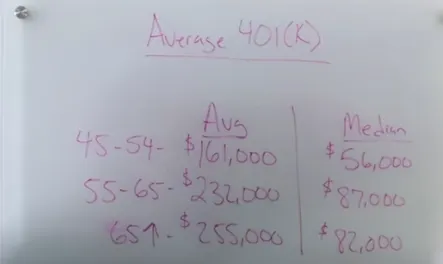 Average 401(K)
Avg Median
45-54- $161,000 $56,000
55-65- $232,000 $87,000
65↑- $255,000 $82,000